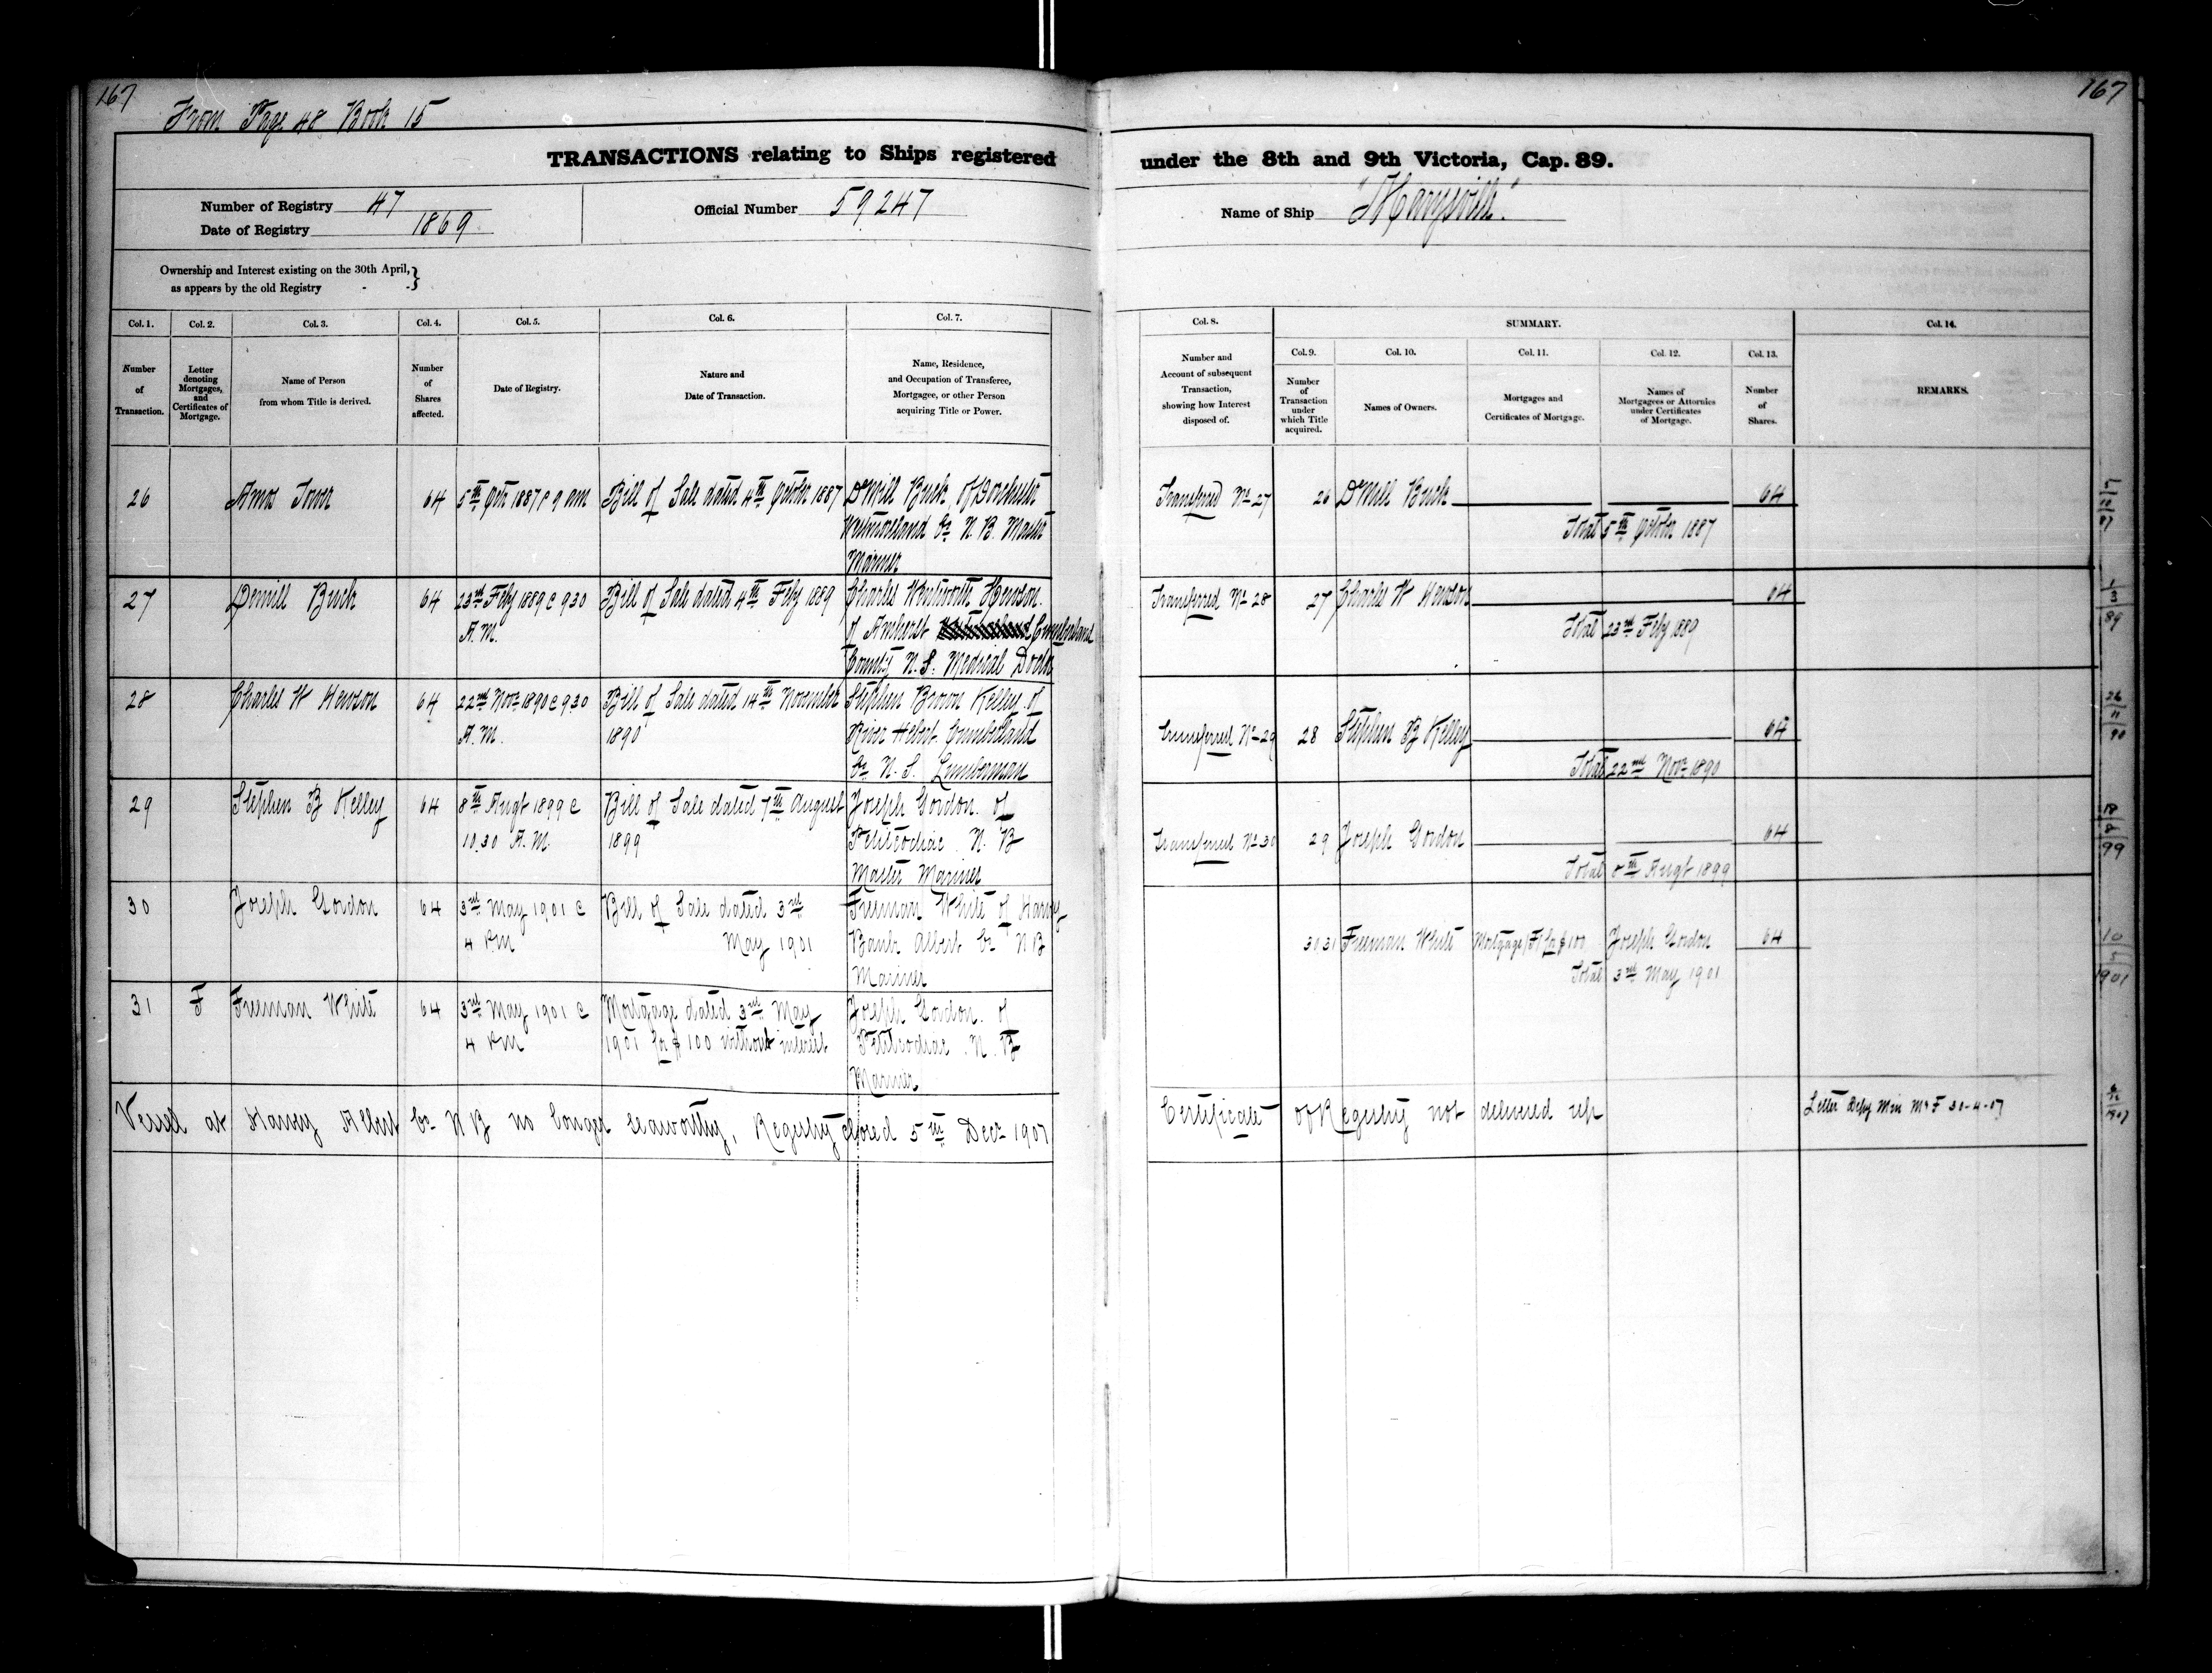 167
From Page 48 Book 15
TRANSACTIONS relating to Ships registered
Number of Registry 47
Date of Registry 1869
Official Number 59247
Ownership and Interest existing on the 30th April,
as appears by the old Registry - - }
Col. 1. Col. 2. Col. 3. Col. 4. Col. 5. Col. 6. Col. 7.
Number of Transaction.
Letter denoting Mortgages, and Certificates of Mortgage.
Name of Person from whom Title is derived.
Number of Shares affected.
Date of Registry.
Nature and Date of Transaction.
Name, Residence, and Occupation of Transferee, Mortgagee, or other Person acquiring Title or Power.
26 Amos Tower 64 5th Octr 1887 @ 9 am Bill of Sale dated 4th October 1887 D'Mill Buck of Dorchester
Westmoreland Co. N. B. Master
Mariner
27 Demill Buck 64 23rd Feby 1889 @ 9 30 Bill of Sale dated 4th Feby 1889 Charles Wentworth Hewson
A. M. of Amherst Cumberland
County N. S. Medical Doctor
28 Charles W Hewson 64 22nd Novr 1890 @ 9 30 Bill of Sale dated 14th November Stephen Brown Kelley of
A. M. 1890 River Hebert Cumberland
Co. N. S. Lumberman
29 Stephen B Kelley 64 8th Augt 1899 @ Bill of Sale dated 7th August Joseph Gordon of
10.30 A. M. 1899 Petitcodiac N. B
Master Mariner
30 Joseph Gordon 64 3rd May 1901 @ Bill of Sale dated 3rd Freeman White of Harvey
4 PM May 1901 Bank Albert Co N B
Mariner
31 F Freeman White 64 3rd May 1901 @ Mortgage dated 3rd May Joseph Gordon of
4 PM 1901 for $100 without interest Petitcodiac N. B
Mariner
Vessel at Harvey Albert Co N B no longer seaworthy, Registry closed 5th Decr 1907
167
under the 8th and 9th Victoria, Cap. 89.
Name of Ship "Marysville"
Col. 8. SUMMARY. Col. 14.
Col. 9. Col. 10. Col. 11. Col. 12. Col. 13.
Number and Account of subsequent Transaction, showing how Interest disposed of.
Number of Transaction under which Title acquired.
Names of Owners.
Mortgages and Certificates of Mortgage.
Names of Mortgagees or Attornies under Certificates of Mortgage.
Number of Shares.
REMARKS.
Transferred No 27 26 D'Mill Buck 64
Total 5th October 1887
Transferred No 28 27 Charles W Hewson 64
Total 23rd Feby 1889
Transferred No 29 28 Stephen B Kelley 64
Total 22nd Novr 1890
Transferred No 30 29 Joseph Gordon 64
Total 8th Augt 1899
31 Freeman White Mortgage F for $100 Joseph Gordon 64
Total 3rd May 1901
10
5
1901
Certificate of Registry not delivered up Letter Depy Min M & F 30-4-07